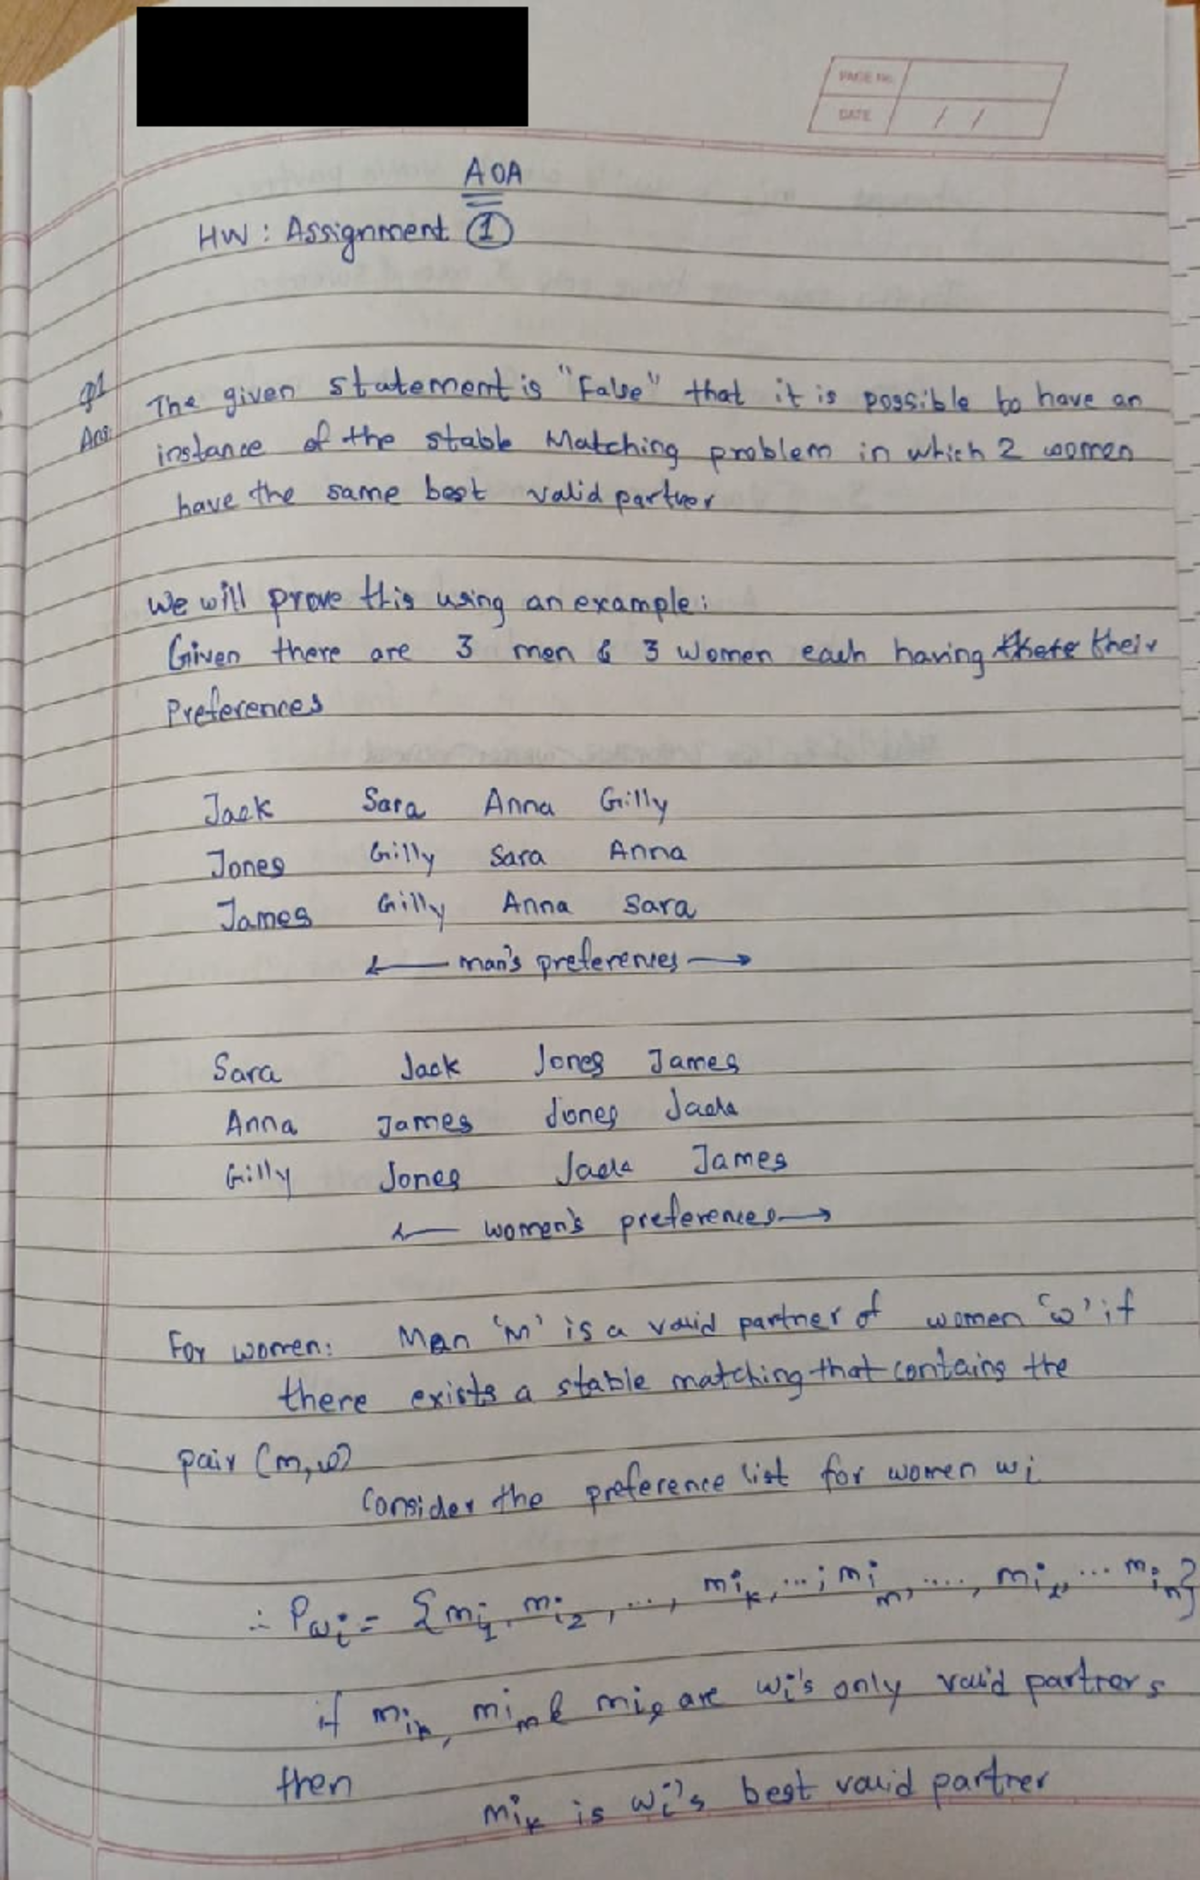 PAGE No.
DATE / /
AOA
HW : Assignment 1
Q1 The given statement is "False" that it is possible to have an
Ans: instance of the stable Matching problem in which 2 women
have the same best valid partner
We will prove this using an example:
Given there are 3 men & 3 women each having their
Preferences
Jack Sara Anna Gilly
Jones Gilly Sara Anna
James Gilly Anna Sara
← man's preferences →
Sara Jack Jones James
Anna James Jones Jack
Gilly Jones Jack James
← women's preferences →
For women: Man 'M' is a valid partner of women 'w' if
there exists a stable matching that contains the
pair (m,w)
Consider the preference list for women wi
∴ Pwi = {mi1, mi2, ..., mik, ...; mim, ...., mil, ... min}
if mik, mim & mil are wi's only valid partners
then
mik is wi's best valid partner